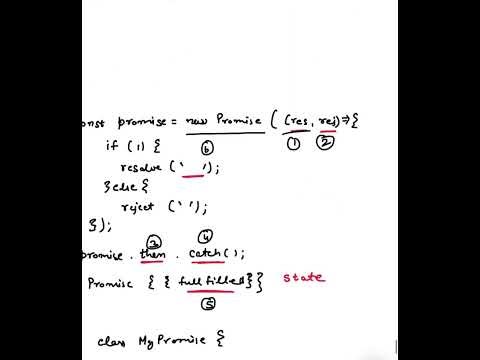 onst promise = new Promise ( (res, rej)=>{
if (1) {
6 1 2
resolve (' ');
}else{
reject (' ');
});
3 4
promise . then . catch();
Promise { { fullfilled}} state
5
class MyPromise {